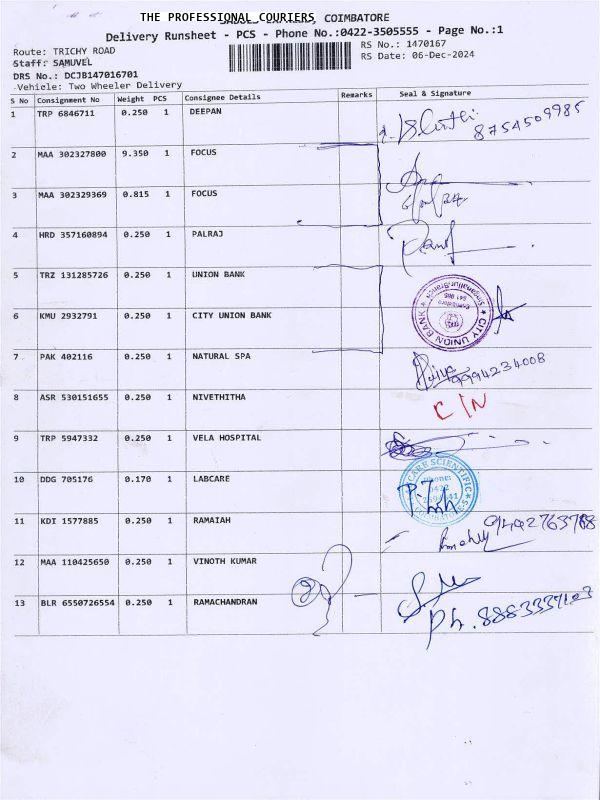 THE PROFESSIONAL COURIERS, COIMBATORE
Delivery Runsheet - PCS - Phone No.:0422-3505555 - Page No.:1
Route: TRICHY ROAD
RS No.: 1470167
Staff: SAMUVEL
RS Date: 06-Dec-2024
DRS No.: DCJB147016701
Vehicle: Two Wheeler Delivery
S No Consignment No Weight PCS Consignee Details Remarks Seal & Signature
1 TRP 6846711 0.250 1 DEEPAN 8754509985
2 MAA 302327800 9.350 1 FOCUS
3 MAA 302329369 0.815 1 FOCUS
4 HRD 357160894 0.250 1 PALRAJ
5 TRZ 131285726 0.250 1 UNION BANK
6 KMU 2932791 0.250 1 CITY UNION BANK
CITY UNION BANK
7 PAK 402116 0.250 1 NATURAL SPA 9994234008
8 ASR 530151655 0.250 1 NIVETHITHA C/N
9 TRP 5947332 0.250 1 VELA HOSPITAL
10 DDG 705176 0.170 1 LABCARE
CARE SCIENTIFIC
11 KDI 1577885 0.250 1 RAMAIAH
12 MAA 110425650 0.250 1 VINOTH KUMAR
13 BLR 6550726554 0.250 1 RAMACHANDRAN